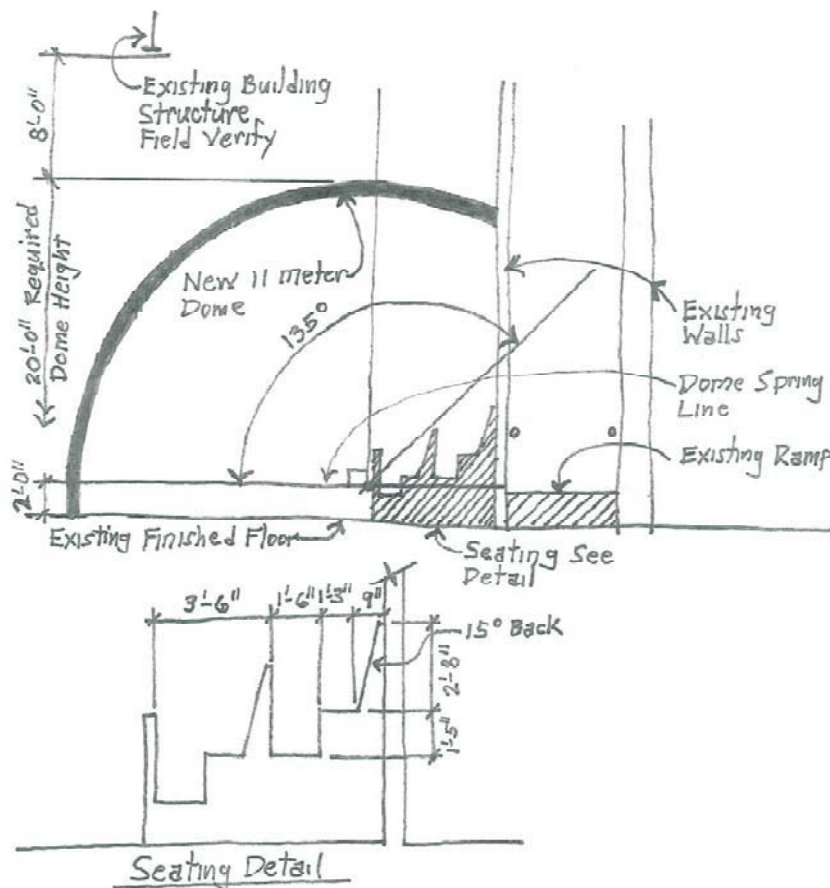 Existing Building
Structure
Field Verify
8'-0"
20'-0" Required
Dome Height
New 11 meter
Dome
135°
Existing
Walls
Dome Spring
Line
Existing Ramp
2'-0"
Existing Finished Floor
Seating See
Detail
3'-6"
1'-6"
1'-3"
9"
15° Back
2'-8"
1'-5"
Seating Detail